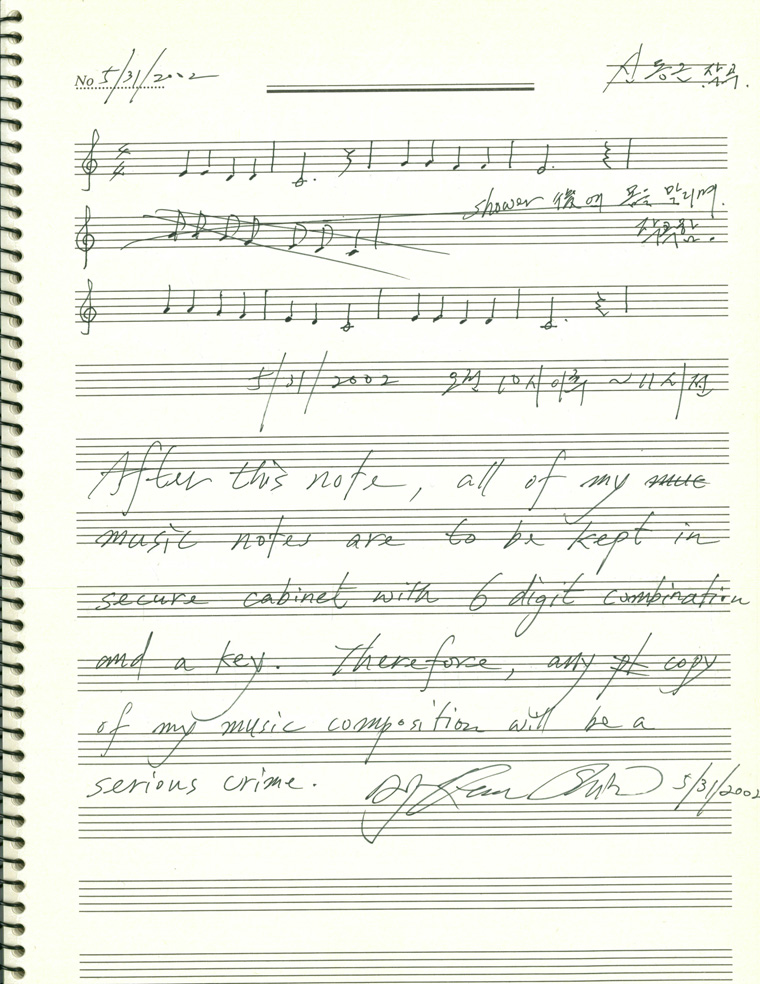 No 5/31/2002
신동근 작곡.
shower 後에 몸을 말리며.
작곡함.
5/31/2002 오전 10시이후 ~ 11시전
After this note, all of my muc
music notes are to be kept in
secure cabinet with 6 digit combination
and a key. Therefore, any copy
of my music composition will be a
serious crime.
5/31/2002